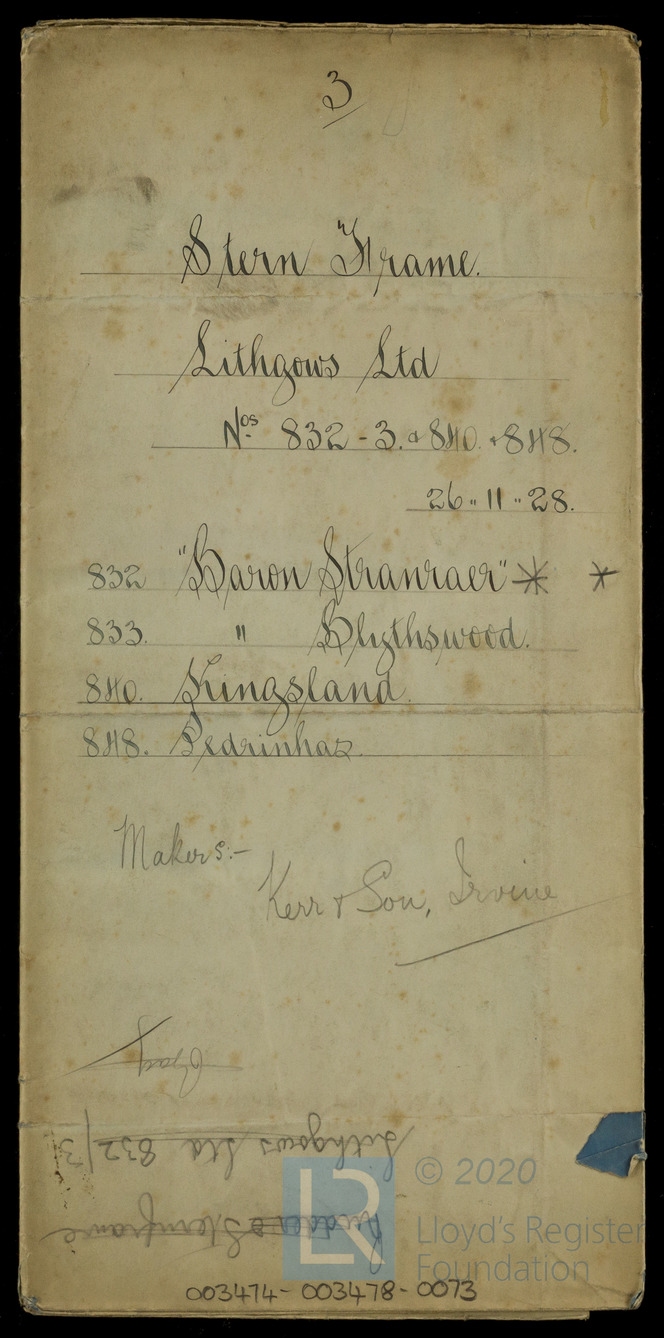 3
Stern Frame.
Lithgows Ltd
Nos 832 - 3. & 840. & 848.
26 - 11 - 28.
832 "Baron Stranraer" * *
833. " Blythswood.
840. Kingsland.
848. Pedrinhas.
Makers:-
Kerr & Son, Irvine
Lithgows Ltd 832/3
Rudder & Sternframe
LR
© 2020
Lloyd's Register
Foundation
003474 - 003478 - 0073